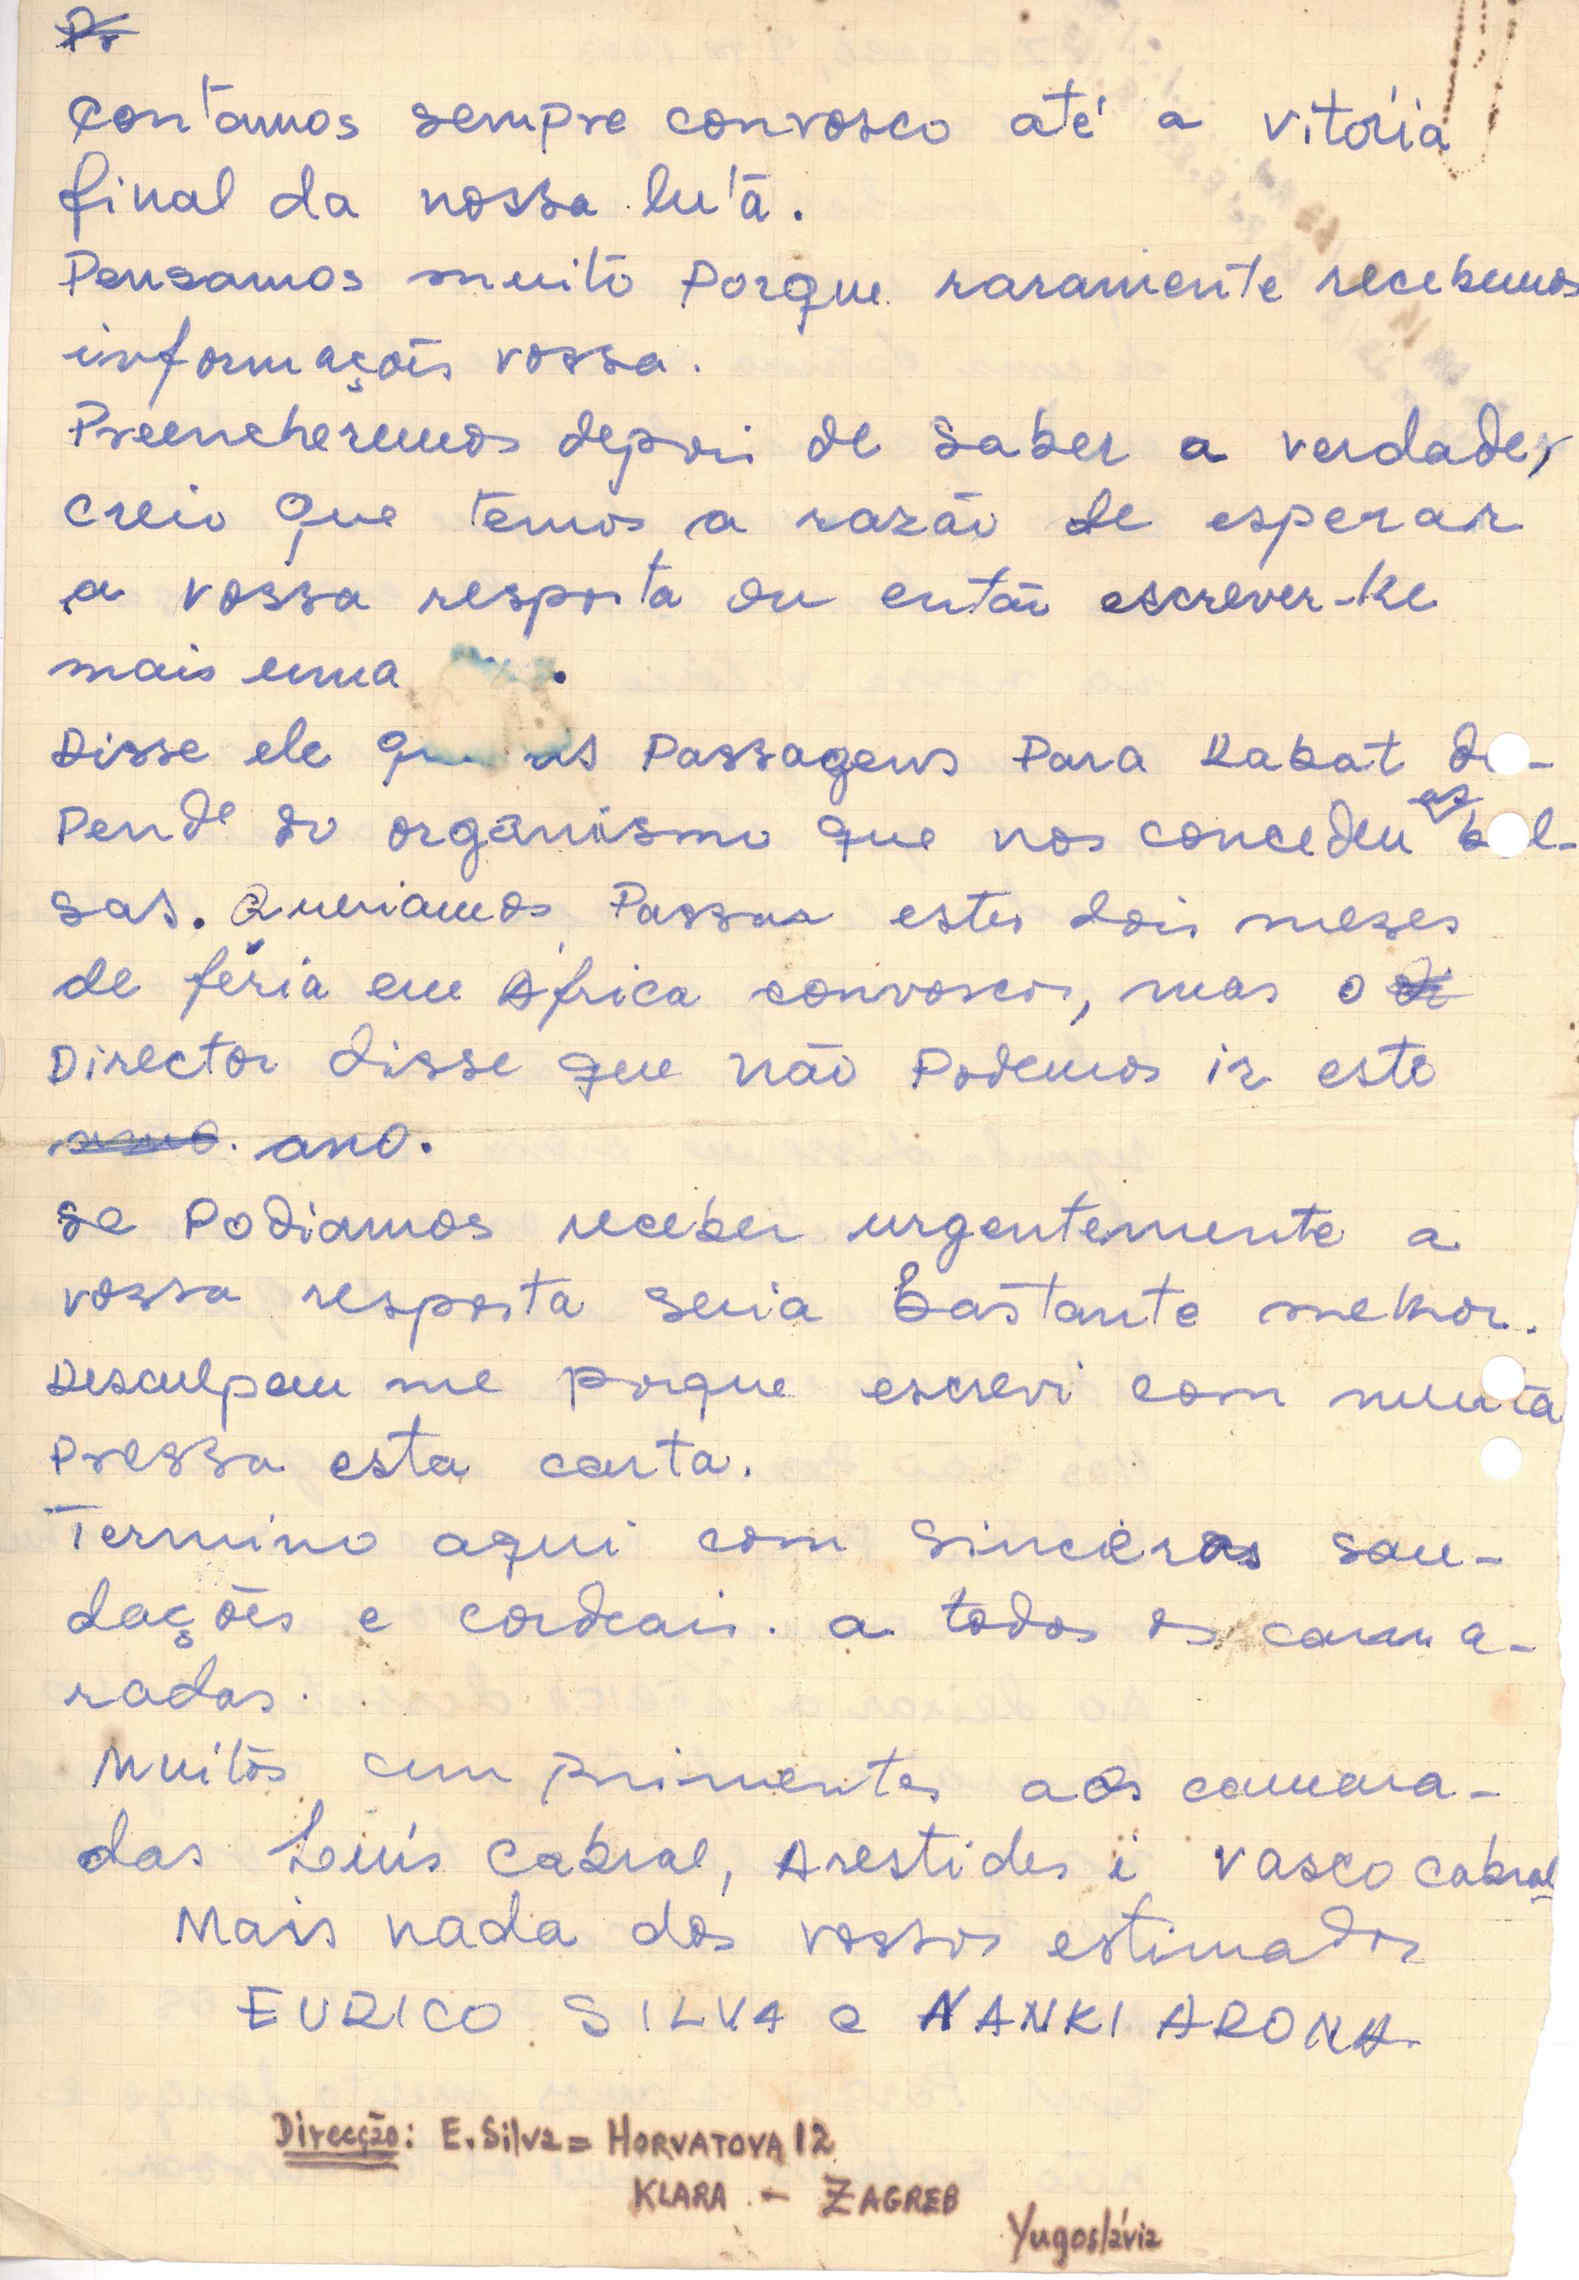 contamos sempre convosco até a vitória
final da nossa luta.
Pensamos muito porque raramente recebemos
informações vossa.
Preencheremos depois de saber a verdade,
creio que temos a razão de esperar
a vossa resposta ou então escrever-lhe
mais uma
Disse ele as Passagens Para Rabat de-
pende do organismo que nos concedeu as bol-
sas. Queriamos Passar estes dois mezes
de féria em África convosco, mas o
Director disse que não Podemos ir este
ano.
se Podiamos receber urgentemente a
vossa resposta seria bastante melhor.
Desculpem me porque escrevi com muita
Pressa esta carta.
Termino aqui com sinceras sau-
dações e cordeais. a todos os cama-
radas.
Muitos cumprimentos aos camara-
das Luís Cabral, Arestides i Vasco Cabral
Mais nada dos vossos estimados
EURICO SILVA e NANKI ARONA
Direcção: E. Silva = HORVATOVA 12
KLARA - ZAGREB
Yugoslávia